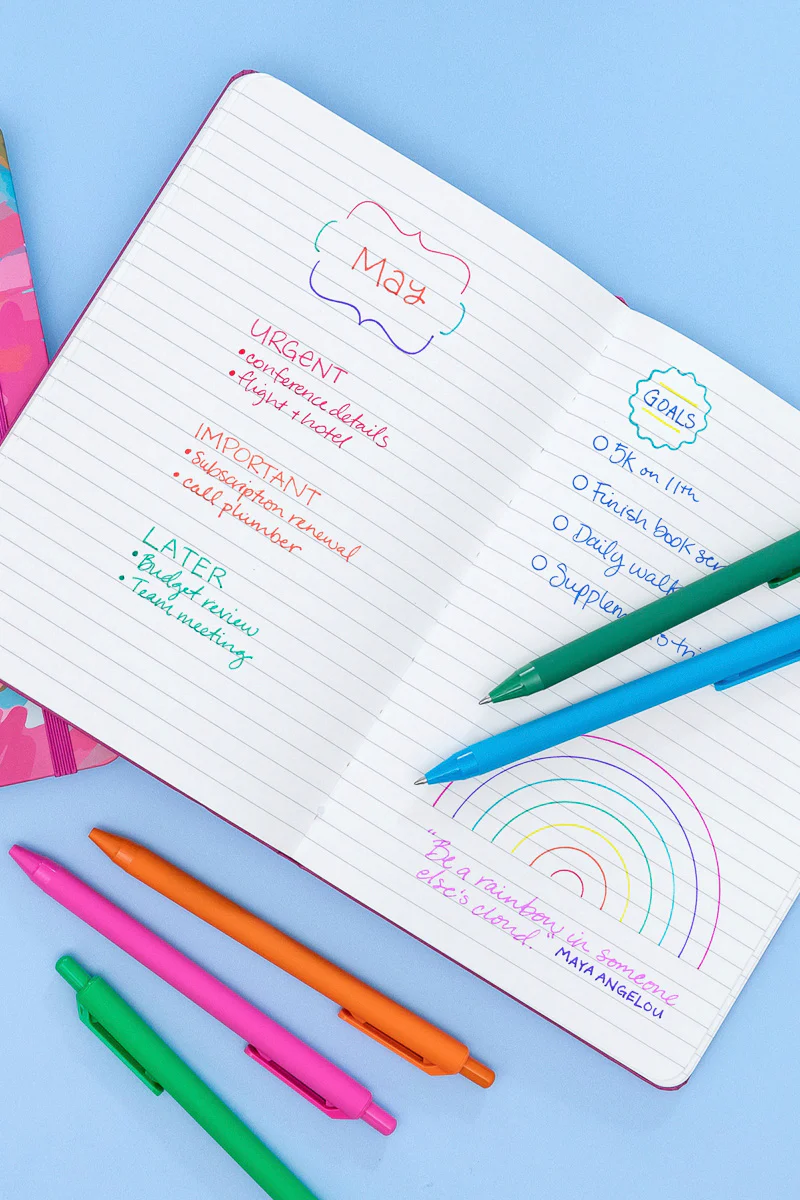 May
URGENT
• conference details
• flight + hotel
IMPORTANT
• subscription renewal
• call plumber
LATER
• Budget review
• Team meeting
GOALS
5K on 11th
Finish book
Daily walk
"Be a rainbow in someone
else's cloud."
MAYA ANGELOU